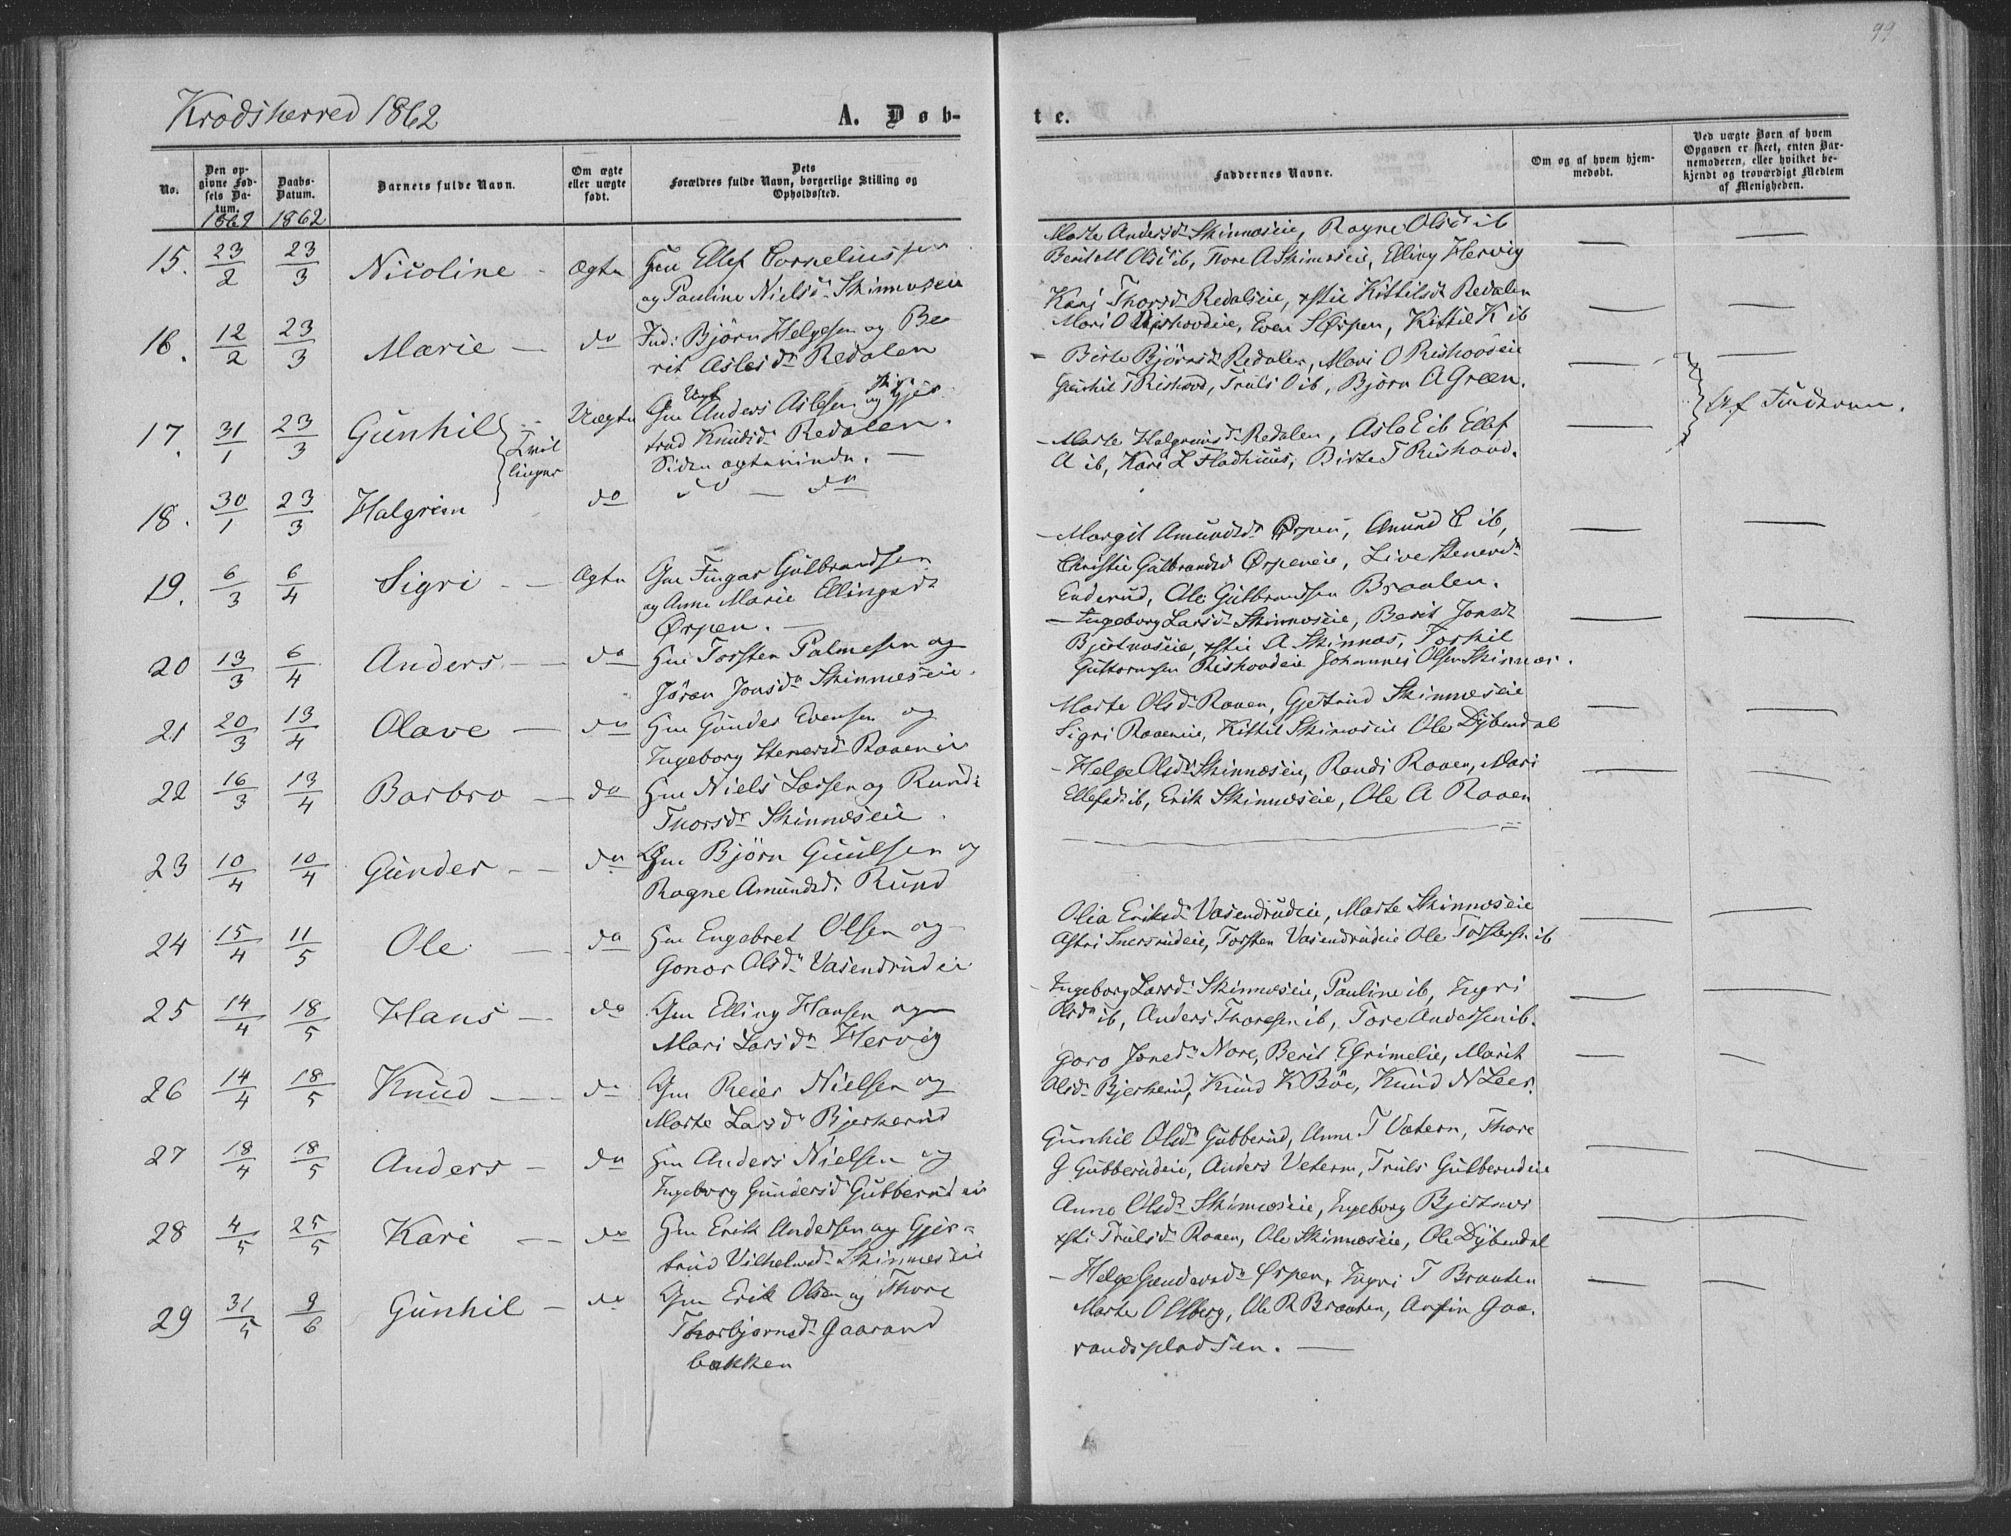 99
Krodsherred 1862
A. Døb-
te.
No.
Den op-
givne Fød-
sels Da-
tum.
Daabs-
Datum.
Barnets fulde Navn.
Om ægte
eller uægte
født.
Dets
Forældres fulde Navn, borgerlige Stilling og
Opholdssted.
Faddernes Navne.
Om og af hvem hjem-
medøbt.
Ved uægte Børn af hvem
Opgaven er skeet, enten Bar-
nemoderen, eller hvilket be-
kjendt og troværdigt Medlem
af Menigheden.
1862 1862
15. 23/2 23/3 Nicoline - Ægte Hm Ellef Corneliussen
og Pauline Nielsd. Skinnæseie
Marte Andersd. Skinnæseie, Ragne Olsd ib
Berit M Olsd ib, Tore A Skinnæseie, Elling Hervig
16. 12/2 23/3 Marie - do Ind: Bjørn Helgesen og Be
rit Aslesd. Redalen
Kari Thorsd. Redalseie, Kittilsd. Redalen
Mari O Rishovdeie, Even S Ørpen, Kittil K ib
17. 31/1 23/3 Gunhil Tvil
linger Uægte Gm Ungk Anders Aslesen og Pige Gjer
trud Knudsd. Redalen.
Siden ægteviede. -
- Birte Bjørnsd. Redalen, Mari O Rishovseie
Gunhil T Rishovd, Truls O ib, Bjørn A Green.
Af Faderen.
18. 30/1 23/3 Halgrim do do - do
- Marte Halgrimsd. Redalen, Asle E ib Ellef
A ib, Kari L Fladhuus, Birte T Rishovd.
19. 6/3 6/4 Sigri - Ægte Gm Fingar Gulbrandsen
og Anne Marie Ellingsd.
Ørpen. -
- Margit Amundsd. Ørpen, Amund E ib,
Christie Gulbrandsd Ørpeneie, Live Stenersd.
Enderud, Ole Gulbrandsen Braaten.
20 13/3 6/4 Anders - do Hm Torsten Palmesen og
Jøran Jonsd. Skinnæseie.
- Ingeborg Larsd. Skinnæseie, Berit Jonsd.
Bjertnæseie, A Skinnæs, Torkil
Guttormsen Rishovdeie Johannes Olsen Skinnæs.
21 20/3 13/4 Olave - do Hm Gunder Evensen og
Ingeborg Stenersd. Raaeneie
Marte Olsd. Raaen, Gjertrud Skinnæseie
Sigri Raaeneie, Kittil Skinnæseie Ole Dybendal
22 16/3 13/4 Barbro - do Hm Niels Larsen og Randi
Thorsd. Skinnæseie.
- Helge Olsd. Skinnæseie, Randi Raaen, Mari
Ellefsd. ib, Erik Skinnæseie, Ole A Raaen
23 10/4 10/4 Gunder - do Gm Bjørn Guulsen og
Ragne Amundsd. Rund
24 15/4 11/5 Ole - do Hm Engebret Olsen og
Gonor Olsd. Vasendrudeie
Olia Eriksd. Vasendrudeie, Marte Skinnæseie
Astri Snersrudeie, Torsten Vasendrudeie Ole Torstens. ib
25 14/4 18/5 Hans - do Gm Elling Hansen og
Mari Larsd. Hervig
- Ingeborg Larsd. Skinnæseie, Pauline ib, Ingri
Olsd. ib, Anders Thoresen ib, Tore Andersen ib.
26 14/4 18/5 Knud - do Gm Reier Nielsen og
Marte Larsd. Bjerkerud
Goro Jonsd. Nore, Berit E Grimelie, Marit
Olsd. Bjerkerud, Knud K Bøe, Knud N Leer.
27 18/4 18/5 Anders - do Hm Anders Nielsen og
Ingeborg Gundersd. Gubberudeie
Gunhil Olsd. Gubberud, Anne T Vetern, Thore
G Gubberudeie, Anders Vetern, Truls Gulberudeie
28 4/5 25/5 Kari - do Hm Erik Andersen og Gjer-
trud Vilhelmsd. Skinnæseie
Anne Olsd. Skinnæseie, Ingeborg Bjertnæs
Trulsd. Raaen, Ole Skinnæseie, Ole Dybendal
29 31/5 9/6 Gunhil - do Gm Erik Olsen og Thore
Thorbjørnsd. Gaarand
bakken
- Helge Gundersd. Ørpen, Ingri T Braaten
Marte O Elberg, Ole R Braaten, Arfin Gaa.
randspladsen. -